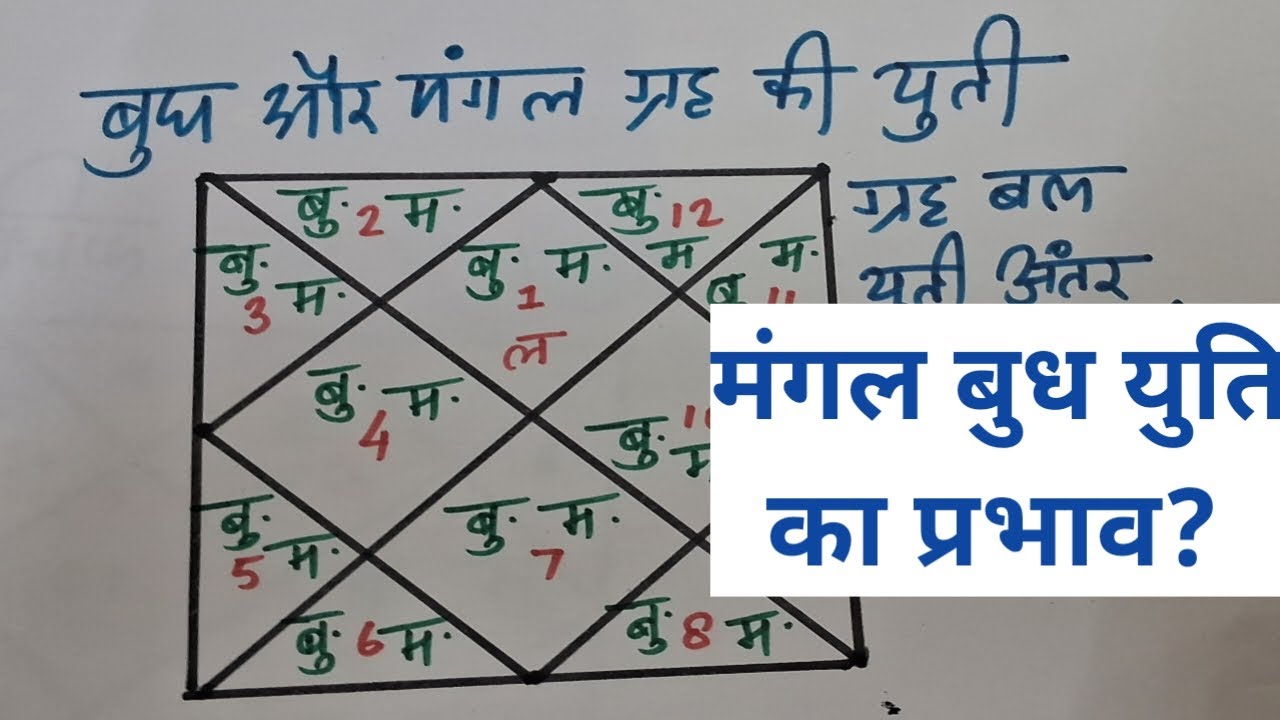 बुध और मंगल ग्रह की युती
ग्रह बल
युती अंतर
बु. 2 म.
बु. 12 म
बु. 3 म.
बु. म. 1 ल
म. बु 11
बु. 4 म.
बु. म
बु. 5 म.
बु. म. 7
बु. 6 म.
बु. 8 म.
मंगल बुध युति
का प्रभाव?